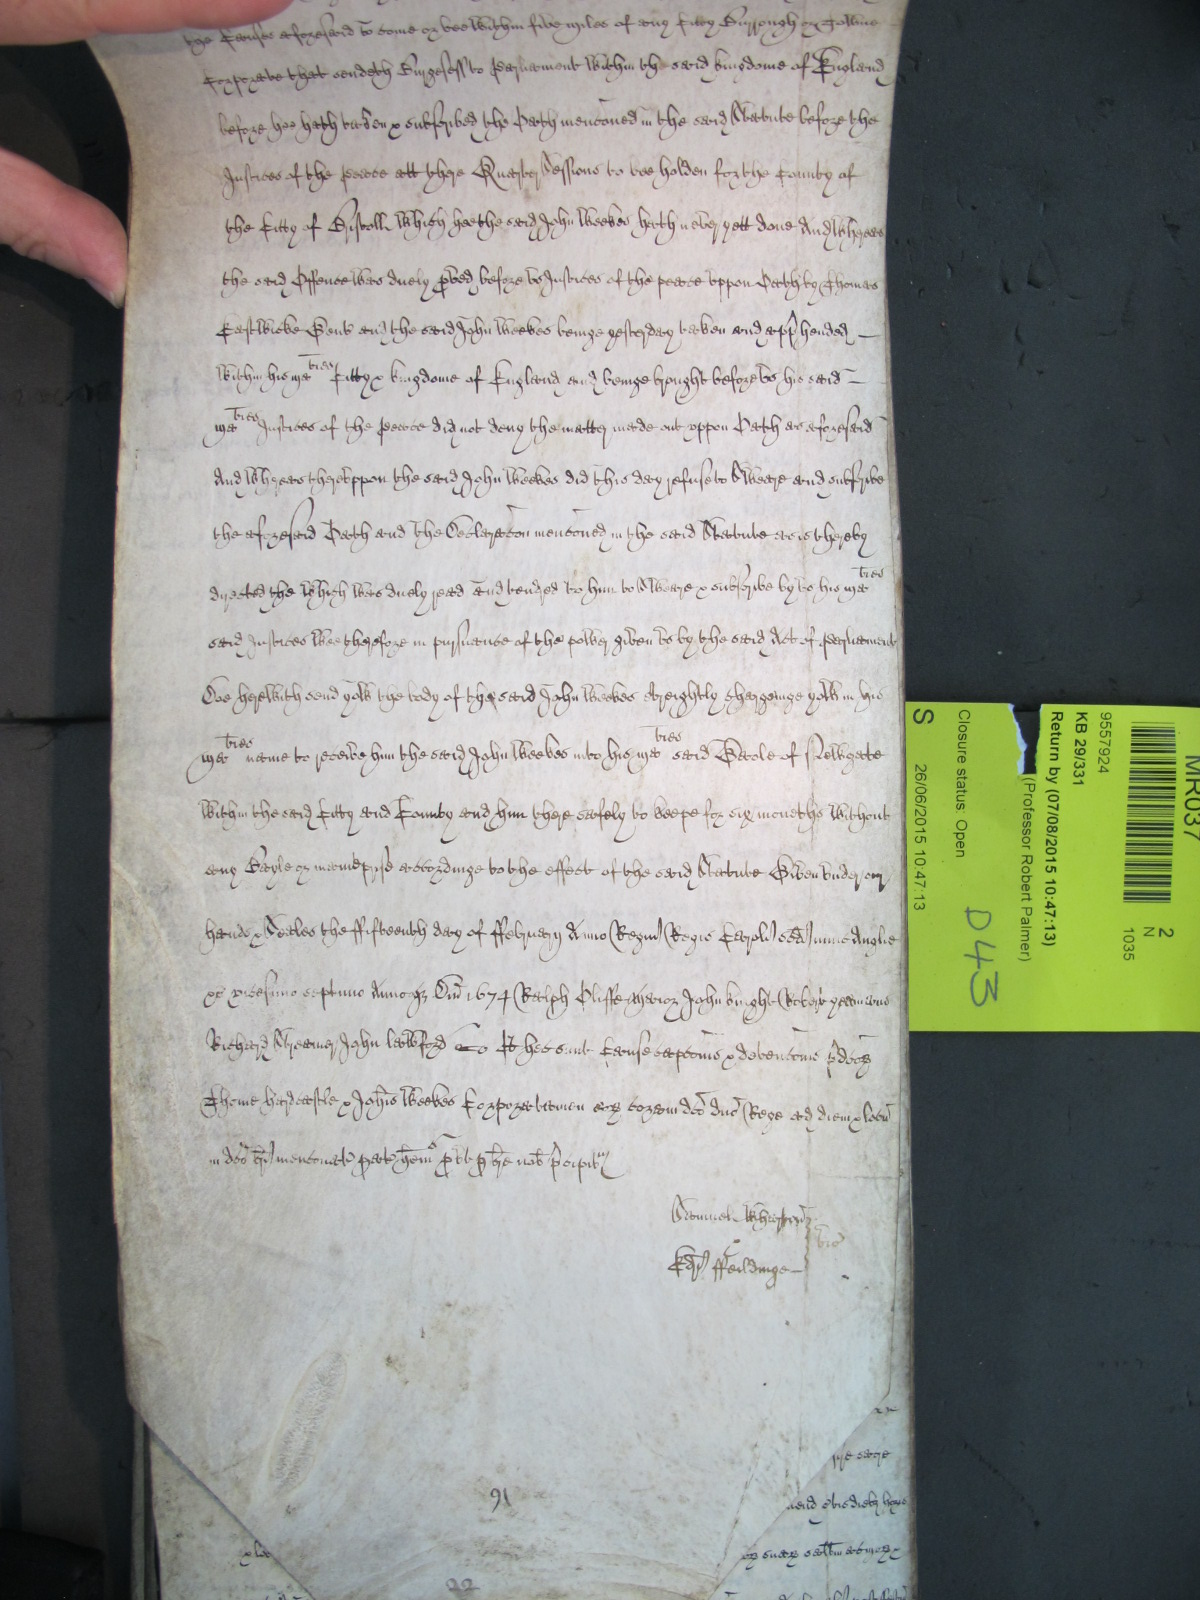 the Causes aforesaid to come or bee within five miles of any Citty Burrough or Towne
Corporate that sendeth Burgesses to Parliament within the said kingdome of England
before hee hath taken & subscribed the Oath menconed in the said Statute before the
Justices of the peace att there Quarter Sessions to bee holden for the County of
the Citty of Bristoll Which hee the said John Weekes hath never yett done And Whereas
the said Offence was duely pved before us Justices of the peace uppon Oath by Thomas
Eastwicke Gent and the said John Weekes beinge yesterday taken and apphended
within his Maties Citty & kingdome of England and beinge brought before us his said
Maties Justices of the peace did not deny the matter made out uppon Oath as aforesaid
And Whereas thereuppon the said John Weekes did this day refuse to Sweare and subscribe
the aforesaid Oath and the Declaracon menconed in the said Statute as is thereby
directed the Which was duely read and tendred to him to Sweare & subscribe by us his Maties
said Justices Wee therefore in pursuance of the power given us by the said Act of Parliament
Doe herewith send yow the body of the said John Weekes streightly chargeinge yow in his
Maties name to receive him the said John Weekes into his Maties said Gaole of Newgate
within the said Citty and County and him there safely to keepe for six moneths without
any Bayle or maineprise accordinge to the effect of the said Statute Given under our
hands & Seales the ffifteenth day of ffebruary Anno Regni Regis Caroli scdi nunc Anglie
&c vicesimo septimo Annoq Dni 1674 Ralph Olliffe Maior John knight Robert yeamans
Richard Streamer John Lawford Et hec sunt Cause capconis & detenconis pdcor
Thome hardcastle & Johis Weekes Corpora tamen eor coram dco dno Rege ad diem & locu
in dco bri mencionat parat hemus put p bre nob pcipitur
Samuel Wharton
Edr ffeildinge
vic
91
22
MR037
2
N
1035
9557924
KB 29/331
Return by (07/08/2015 10:47:13)
(Professor Robert Palmer)
Closure status: Open
S 26/06/2015 10:47:13
D43